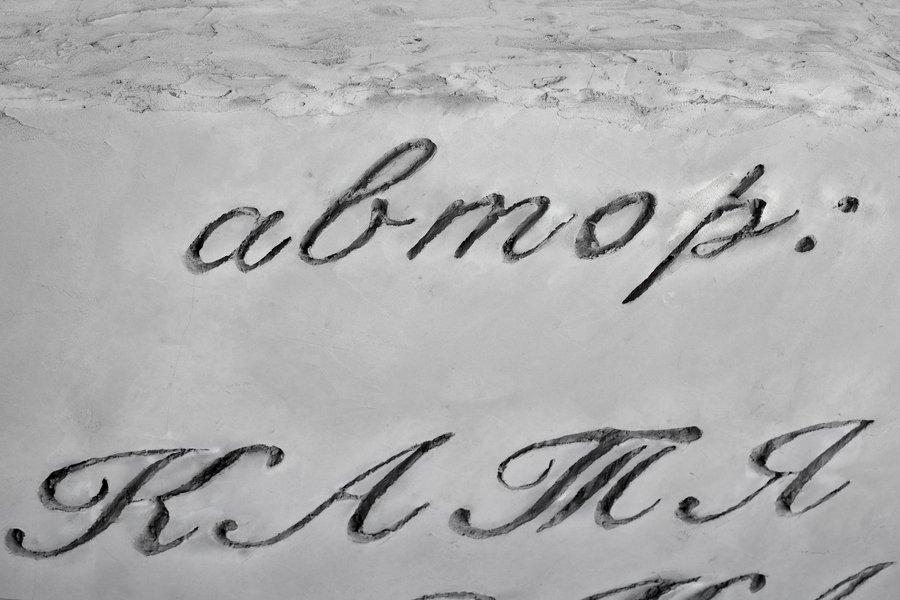 автор:
КАТЯ